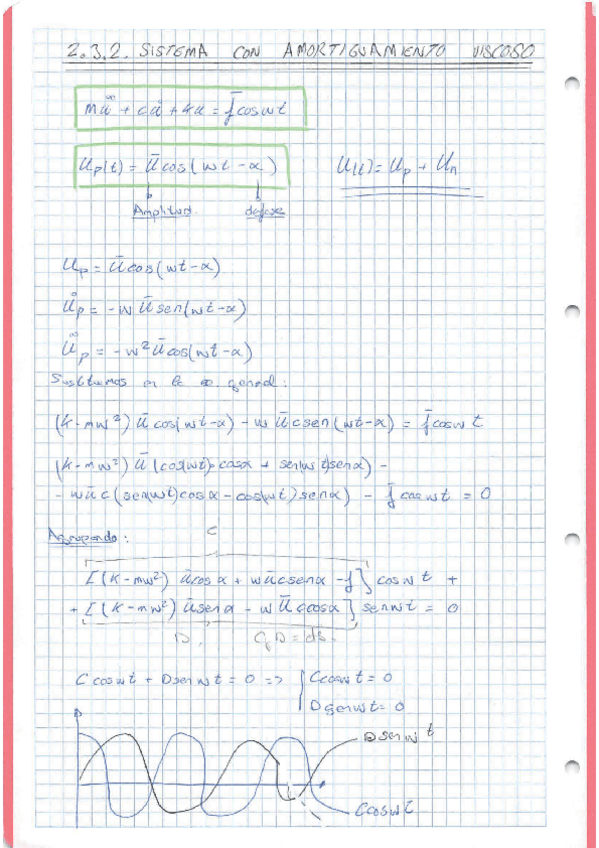 2.3.2. SISTEMA CON AMORTIGUAMIENTO VISCOSO
mü + cu̇ + ku = f̄ cos wt
Up(t) = ū cos(wt - α)
U(t) = Up + Un
Amplitud. defase
Up = ū cos(wt-α)
U̇p = -w ū sen(wt-α)
Üp = -w² ū cos(wt-α)
Sustituimos en la ec. general:
(K-mw²) ū cos(wt-α) - w ū c sen(wt-α) = f̄ cos w t
(K-mw²) ū (cos(wt)·cosα + sen(wt)senα) -
- w ū c (sen(wt)cosα - cos(wt)senα) - f̄ cos wt = 0
Agrupando:
C
[(K-mw²) ū cosα + w ū c senα - f̄] cos wt +
+ [(K-mw²) ū senα - w ū c cosα] sen wt = 0
D. C, D = cts.
C cos wt + D sen wt = 0 => { C cos wt = 0
D sen wt = 0
D sen wt
C cos wt